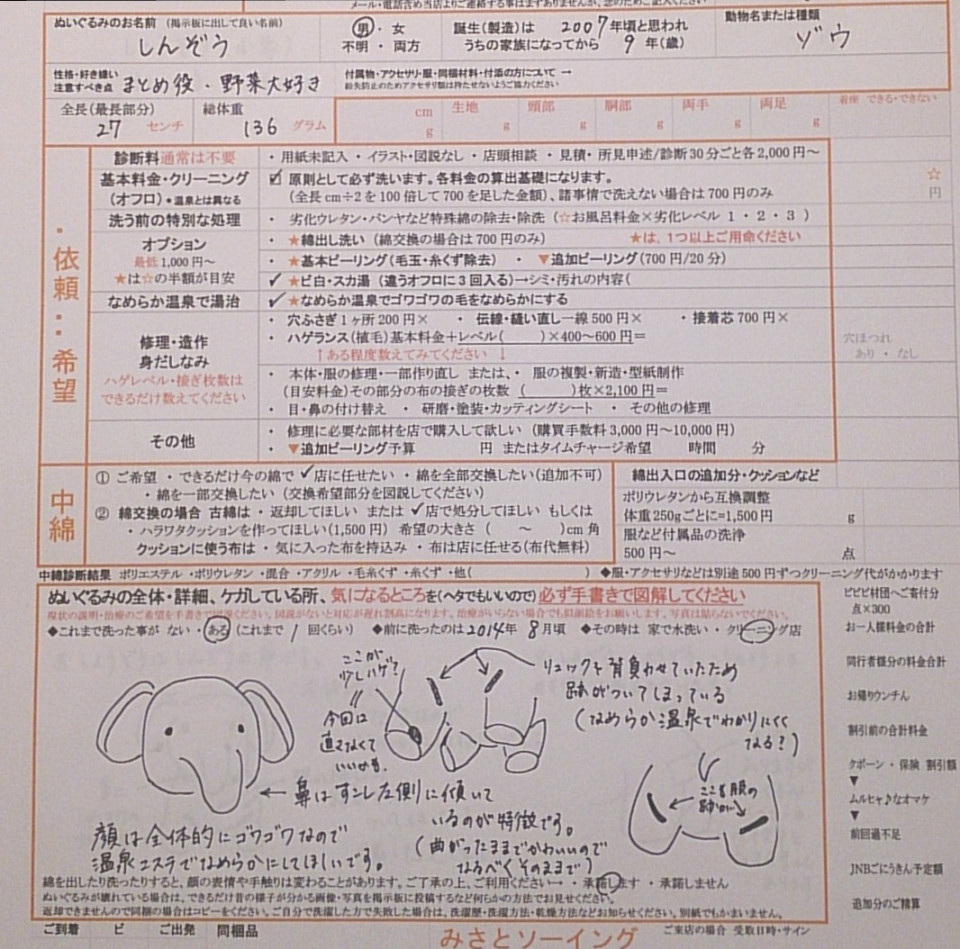 メール・電話含め当店よりご連絡する事はまずありませんが、念のためご記入ください
ぬいぐるみのお名前 (掲示板に出して良い名前)
しんぞう
男・女
不明・両方
誕生(製造)は 2007年頃と思われ
うちの家族になってから 9 年(歳)
動物名または種類
ゾウ
性格・好き嫌い
注意すべき点 まとめ役・野菜大好き
付属物・アクセサリ・服・同梱材料・付添の方について →
紛失防止のためアクセサリ類は持たせないようご協力ください
全長(最長部分)
27 センチ
総体重
136 グラム
cm
g
生地
g
頭部
g
胴部
g
両手
g
両足
g
着座 できる・できない
・依頼・・希望
診断料通常は不要
・用紙未記入・イラスト・図説なし・店頭相談・見積・所見申述/診断30分ごと各2,000円〜
基本料金・クリーニング
(オフロ)●温泉とは異なる
☑ 原則として必ず洗います。各料金の算出基礎になります。
(全長cm÷2を100倍して700を足した金額)、諸事情で洗えない場合は700円のみ
☆
円
洗う前の特別な処理
・劣化ウレタン・パンヤなど特殊綿の除去・除洗 (☆お風呂料金×劣化レベル 1・2・3)
オプション
最低1,000円〜
★は☆の半額が目安
・★綿出し洗い (綿交換の場合は700円のみ) ★は、1つ以上ご用命ください
・★基本ピーリング(毛玉・糸くず除去) ・ ▼追加ピーリング(700円/20分)
✓★ピ白・スカ湯 (違うオフロに3回入る)→シミ・汚れの内容(
なめらか温泉で湯治
✓★なめらか温泉でゴワゴワの毛をなめらかにする
修理・造作
身だしなみ
ハゲレベル・接ぎ枚数は
できるだけ数えてください
・ 穴ふさぎ1ヶ所200円× ・ 伝線・縫い直し一線500円× ・接着芯700円×
・ ハゲランス(植毛)基本料金+レベル( )×400〜600円=
↑ある程度数えてみてください ↓
穴ほつれ
あり ・ なし
・ 本体・服の修理・一部作り直し または、・ 服の複製・新造・型紙制作
(目安料金)その部分の布の接ぎの枚数 ( )枚×2,100円=
・ 目・鼻の付け替え ・ 研磨・塗装・カッティングシート ・ その他の修理
その他
・ 修理に必要な部材を店で購入して欲しい (購買手数料3,000円〜10,000円)
・ ▼追加ピーリング予算 円 またはタイムチャージ希望 時間 分
中綿
① ご希望・できるだけ今の綿で✓店に任せたい・綿を全部交換したい(追加不可)
・綿を一部交換したい (交換希望部分を図説してください)
② 綿交換の場合 古綿は・返却してほしい または✓店で処分してほしい もしくは
・ハラワタクッションを作ってほしい(1,500円) 希望の大きさ ( 〜 )cm角
クッションに使う布は・気に入った布を持込み・布は店に任せる(布代無料)
綿出入口の追加分・クッションなど
ポリウレタンから互換調整
体重250gごとに=1,500円 g
服など付属品の洗浄
500円〜 点
中綿診断結果 ポリエステル・ポリウレタン・混合・アクリル・毛糸くず・糸くず・他( )
◆服・アクセサリなどは別途500円ずつクリーニング代がかかります
ぬいぐるみの全体・詳細、ケガしている所、気になるところを(ヘタでもいいので)必ず手書きで図解してください
現状の説明・治療のご希望を手書きで図説ください。図説がないと対応が遅れ割高になります。治療がいらない場合でも似顔絵をお願いします。写真は貼らないでください。
◆これまで洗った事が ない・ある (これまで 1 回くらい) ◆前に洗ったのは 2014年 8月頃 ◆その時は 家で水洗い・クリーニング店
ここが
少しハゲ?
今回は
直さなくて
いいかも。
リュックを背負わせていたため
跡がついてしまっている
(なめらか温泉でわかりにくく
なる?)
ここも服の
跡が…
← 鼻はすこし左側に傾いて
いるのが特徴です。
(曲がったままでかわいいので
なるべくそのままで)
顔は全体的にゴワゴワなので
温泉エステでなめらかにしてほしいです。
綿を出したり洗ったりすると、顔の表情や手触りは変わることがあります。ご了承の上、ご利用ください― ・承諾します ・承諾しません
ぬいぐるみが壊れている場合は、できるだけ昔の様子が分かる画像・写真を掲示板に投稿するなど何らかの方法でお見せください。
返却できませんので同梱の場合はコピーをください。ご自分で洗濯した方で失敗した場合は、洗濯歴・洗濯方法・乾燥方法などお知らせください。別紙でもかまいません。
ピピピ村団へご寄付分
点×300
お一人様料金の合計
同行者様分の料金合計
お帰りウンチん
割引前の合計料金
クポーン・保険 割引額
▼
ムルヒャ♪なオマケ
▼
前回過不足
JNBごにうきん予定額
追加分のご精算
ご到着
ピ
ご出発
同梱品
みさとソーイング
ご来店の場合 受取日時・サイン